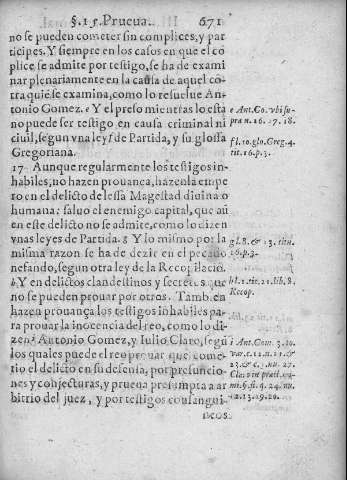 §.15. Prueua. 671
no se pueden cometer sin complices, y par
ticipes. Y siempre en los casos en que el cõ
plice se admite por testigo, se ha de exami
nar plenariamente en la causa de aquel cõ
tra quiẽ se examina, como lo resuelue An-
tonio Gomez. e Y el preso mientras lo està
no puede ser testigo en causa criminal ni
ciuil, segun vna ley f de Partida, y su glossa
Gregoriana.
17 Aunque regularmente los testigos in-
habiles, no hazen prouança, hazenla empe
ro en el delicto de lessa Magestad diuina o
humana: saluo el enemigo capital, que aũ
en este delicto no se admite, como lo dizen
vnas leyes de Partida. g Y lo mismo por la
misma razon se ha de dezir en el pecado
nefando, segun otra ley de la Recopilaciõ.
h Y en delictos clandestinos y secretos que
no se pueden prouar por otros. Tambien
hazen prouança los testigos inhabiles pa-
ra prouar la inocencia del reo, como lo di-
zen i Antonio Gomez, y Iulio Claro, segũ
los quales puede el reo prouar que come-
tio el delicto en su defensa, por presuncio-
nes y conjecturas, y prueua presumpta a ar
bitrio del juez, y por testigos consangui-
neos
e Ant. Co. vbi su-
pra n. 16. 17. 18.
f l. 10. glo. Greg. 4.
tit. 16. p. 3.
g l. 8. & 13. titu.
16. p. 3.
h l. 1. tit. 21. lib. 8.
Recop.
i Ant. Gom. 3. to.
var. c. 12. n. 21. &
23. & c. 3. nu. 27.
Cla. vin pract. cri-
mi. § fi. q. 24. nu.
12. 13. 29. 20.